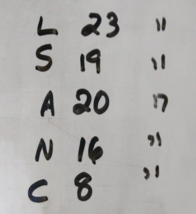 L 23 "
S 19 "
A 20 "
N 16 "
C 8 "